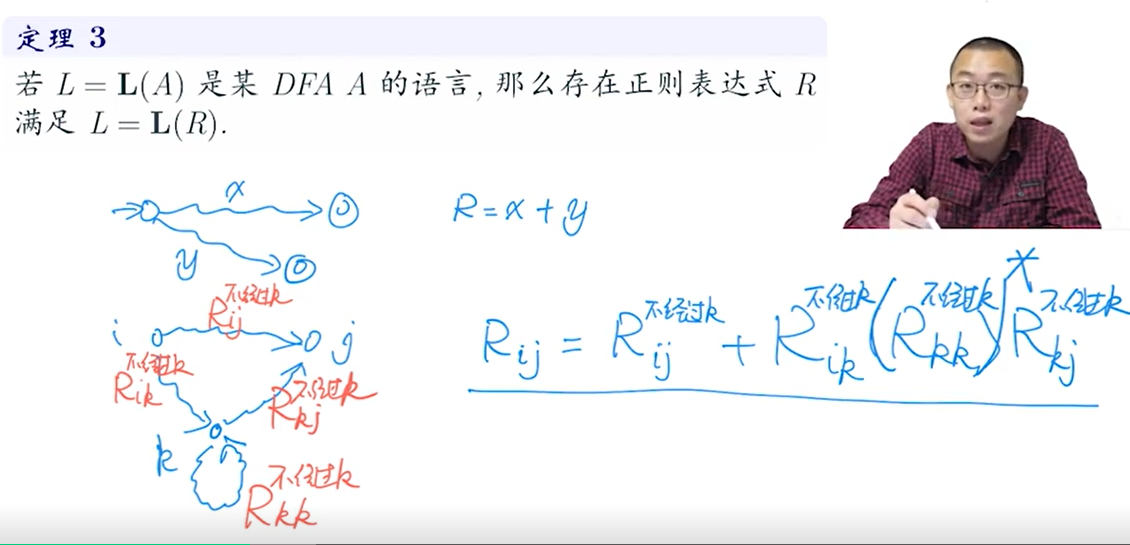 定理 3
若 L = L(A) 是某 DFA A 的语言, 那么存在正则表达式 R
满足 L = L(R).
x
R = x + y
y
R_{ij}^{不经过k}
i
j
R_{ij} = R_{ij}^{不经过k} + R_{ik}^{不经过k} (R_{kk}^{不经过k})^* R_{kj}^{不经过k}
R_{ik}^{不经过k}
R_{kj}^{不经过k}
k
R_{kk}^{不经过k}